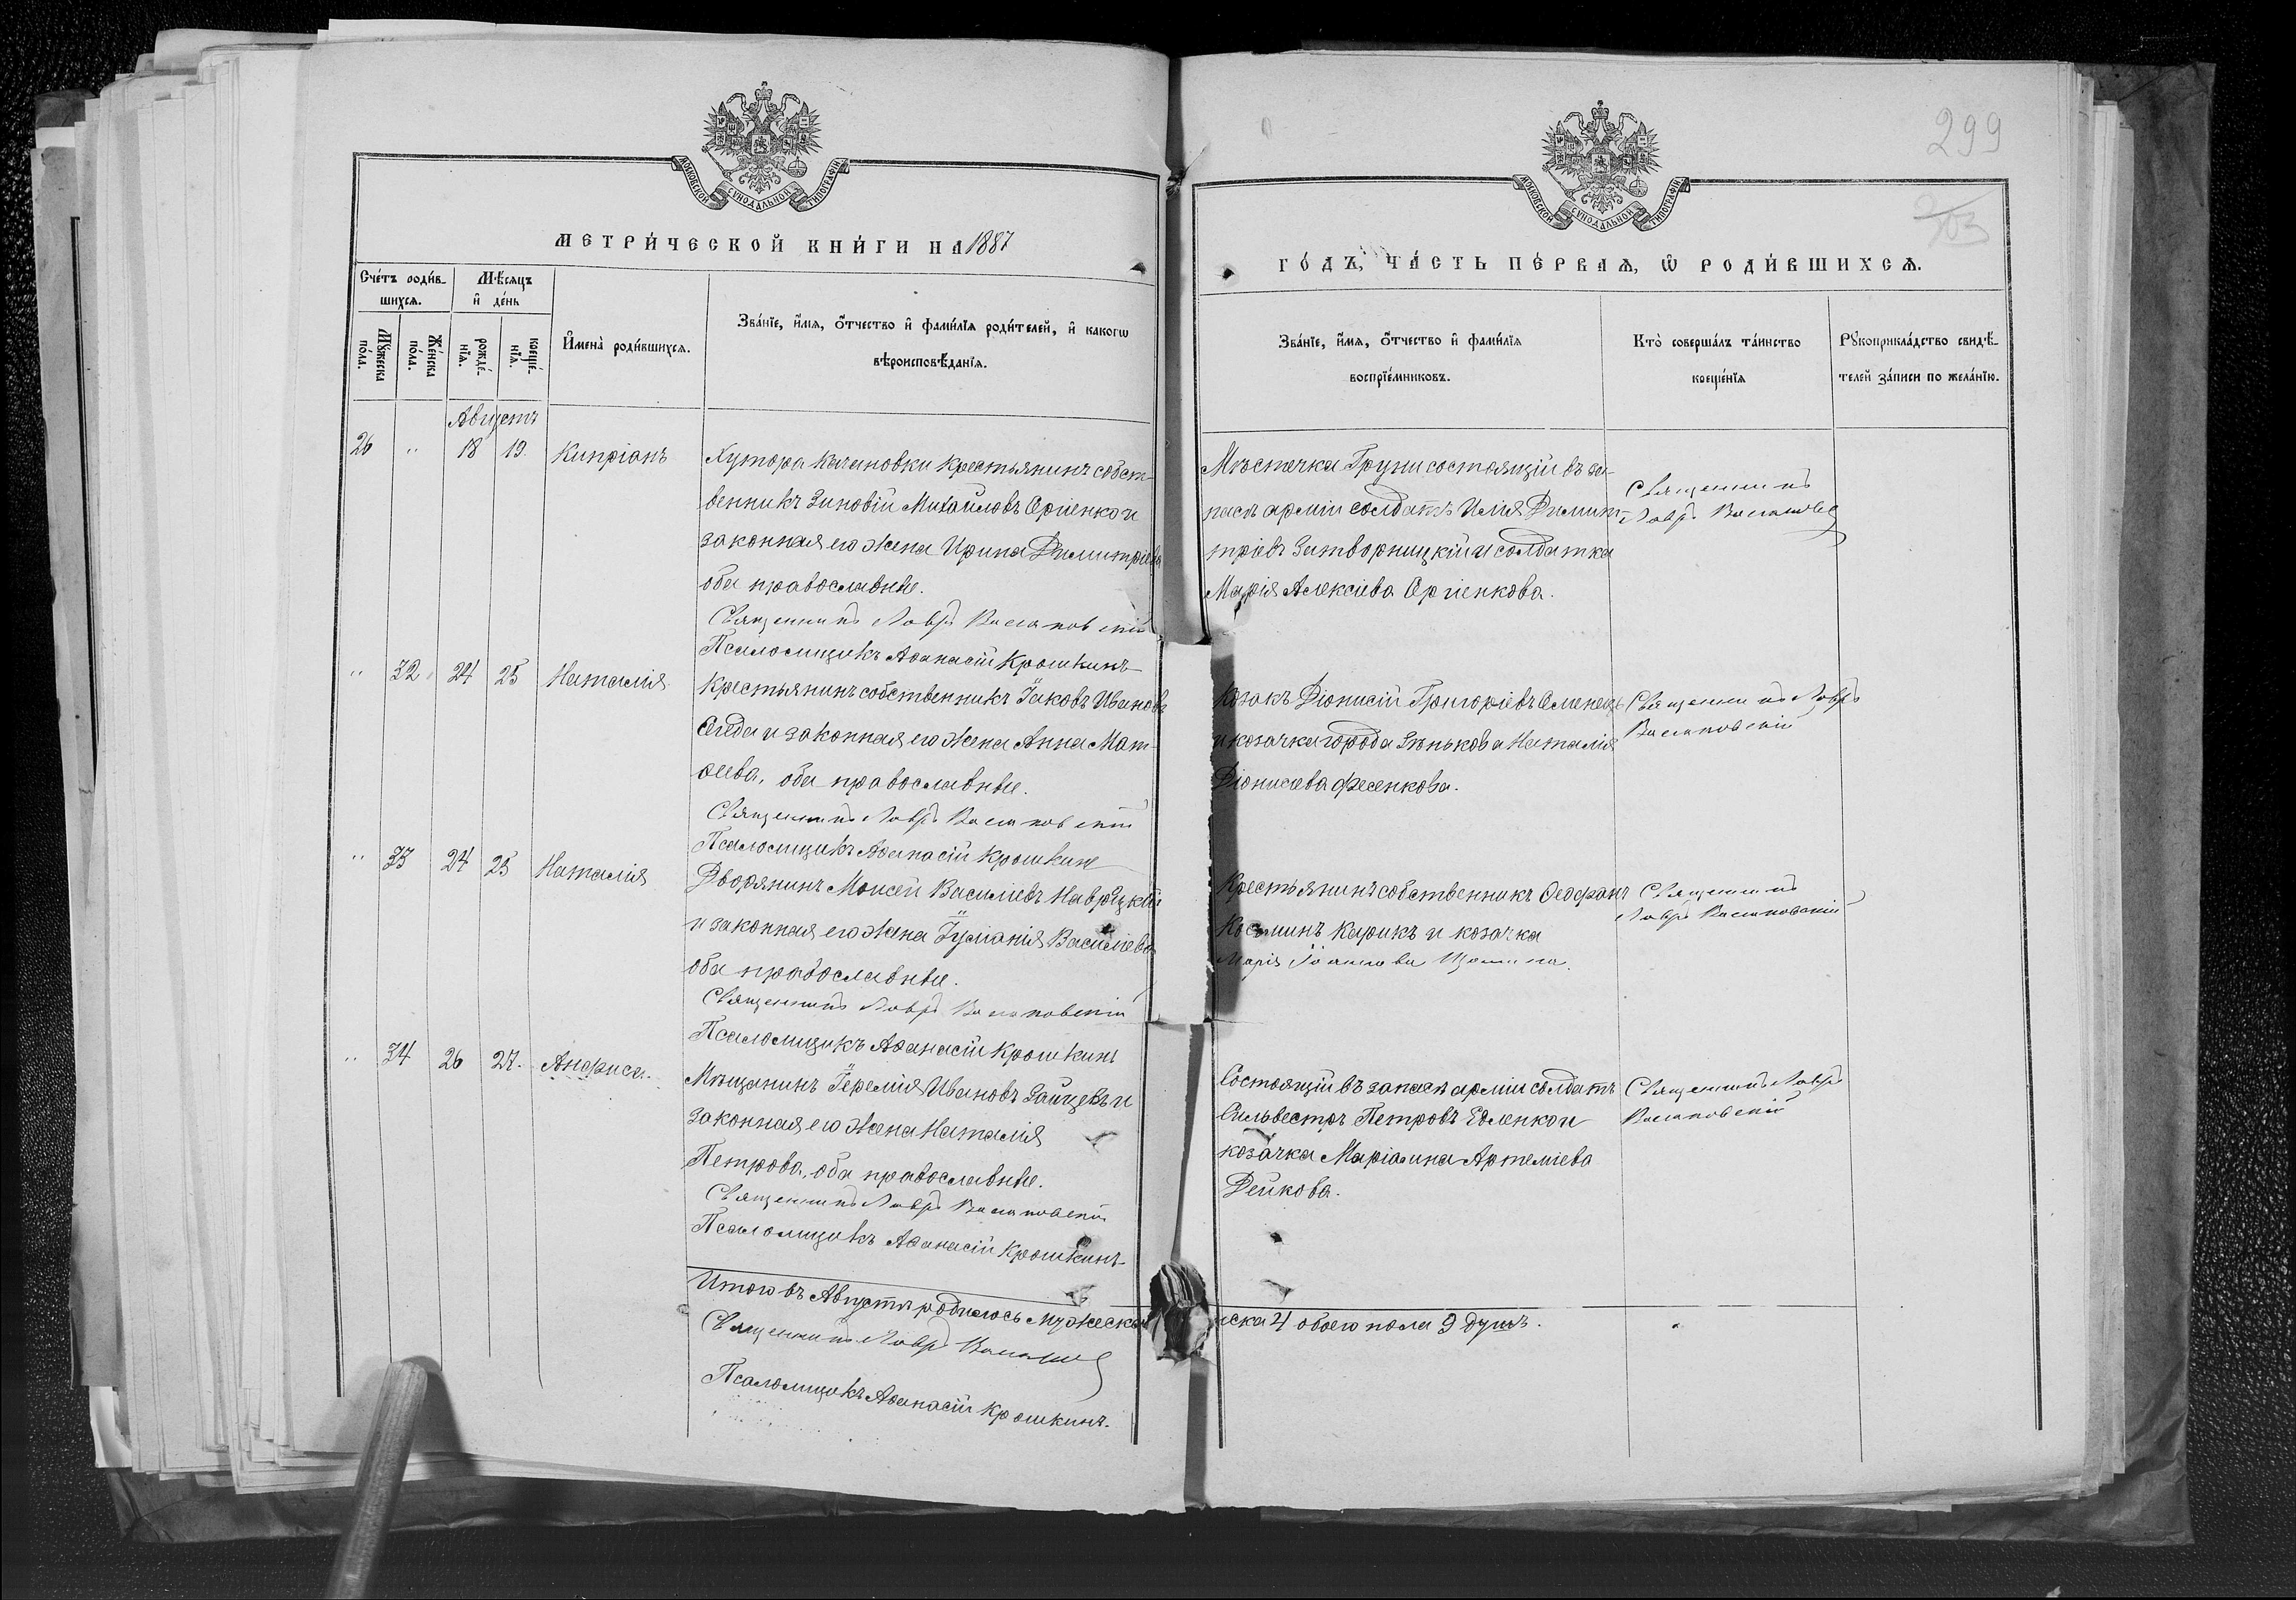 299
МОСКОВСКОЙ СУНОДАЛЬНОЙ ТИПОГРАФІИ
МОСКОВСКОЙ СУНОДАЛЬНОЙ ТИПОГРАФІИ
МЕТРИ́ЧЕСКОЙ КНИ́ГИ НА 1887
ГО́ДЪ, ЧА́СТЬ ПЕ́РВАЯ, Ѡ҆ РОДИ́ВШИХСЯ.
Сче́тъ роди́в-
шихся.
Мѣ́сяцъ
и҆ де́нь
Му́жеска
по́ла.
Же́нска
по́ла.
рожде́-
нїя.
креще́-
нїя.
И҆мена̀ роди́вшихся.
Зва́нїе, и҆́мя, ѻ҆́тчество и҆ фами́лїя роди́телей, и҆ какогѡ
вѣроисповѣ́данїя.
Зва́нїе, и҆́мя, ѻ҆́тчество и҆ фами́лїя
воспрїе́мниковъ.
Кто̀ соверша́лъ та́инство
креще́нїя
Рꙋкоприкла́дство свидѣ́-
телей за́писи по жела́нїю.
Августъ
26 " 18 19 Кипріанъ
Хутора Качановки крестьянинъ собст-
венникъ Зиновій Михайловъ Сріенко и
законная его жена Ирина Димитріева
оба православные.
Священникъ Лавръ
Псаломщикъ Аѳанасій Крошкинъ
Мѣстечка Груни состоящій въ за-
пасѣ арміи солдатъ Илія Димит-
тріевъ Затворницкій и солдатка
Марія Алексіева
Священникъ
Лавръ
" 32 24 25 Наталія
Крестьянинъ собственникъ Іаковъ Ивановъ
и законная его жена Анна Мат-
ѳеева, оба православные.
Священникъ Лавръ
Псаломщикъ Аѳанасій Крошкинъ
Козакъ Діонисій Григоріевъ Семенецъ
и козачка города Зѣнькова Наталія
Діонисіева Фесенкова.
Священникъ Лавръ
" 33 24 25 Наталія
Дворянинъ Моисей Василіевъ Навроцкій
и законная его жена Іуліанія Василіева
оба православные.
Священникъ Лавръ
Псаломщикъ Аѳанасій Крошкинъ
Крестьянинъ собственникъ Ѳеофанъ
Косьминъ Карикъ и козачка
Марія Іоаннова
Священникъ
Лавръ
" 34 26 27. Анфиса.
Мѣщанинъ Іеремія Ивановъ Зайцевъ и
законная его жена Наталія
Петрова, оба православные.
Священникъ Лавръ
Псаломщикъ Аѳанасій Крошкинъ
Состоящій въ запасѣ арміи солдатъ
Сильвестръ Петровъ Едленко и
козачка Маріамна Артеміева
Дейкова.
Священникъ Лавръ
Итого въ Августѣ родилось мужеска
нска 4 обоего пола 9 душъ.
Священникъ Лавръ
Псаломщикъ Аѳанасій Крошкинъ.